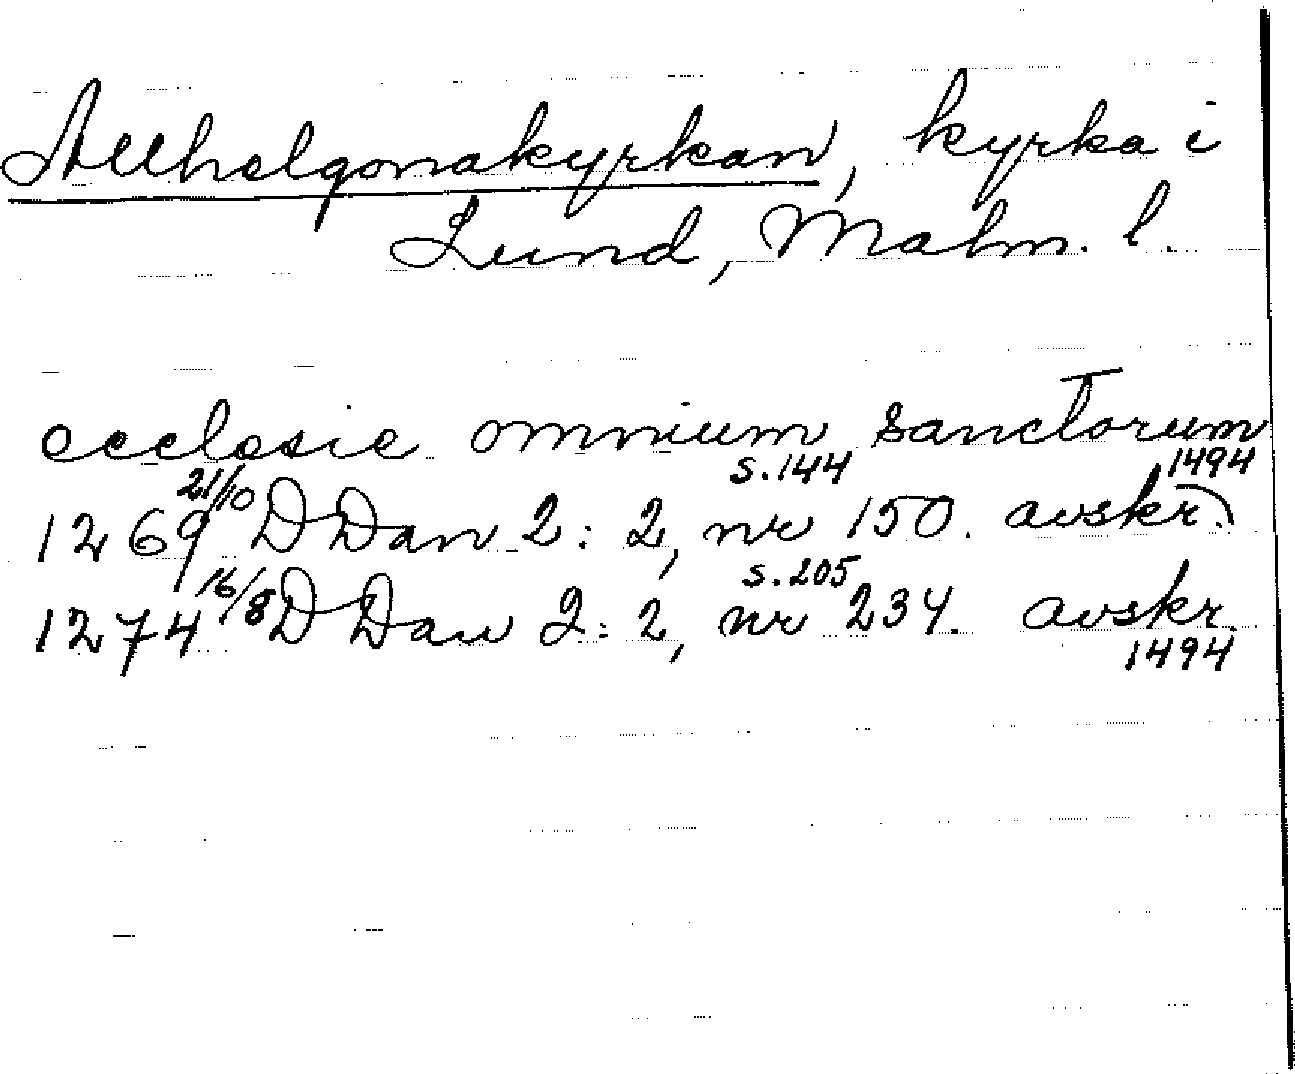 Allhelgonakyrkan, kyrka i
Lund, Malm. l.
ecclesie omnium sanctorum
1269 21/10 DDan 2:2, nr 150. s.144 avskr. 1494
1274 16/8 DDan 2:2, nr 234. s.205 avskr. 1494